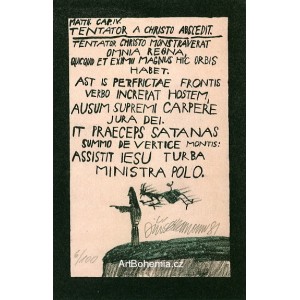 MATTH. CAP. IV.
TENTATOR A CHRISTO ABSCEDIT.
TENTATOR CHRISTO MONSTRAVERAT
OMNIA REGNA,
QUICQUID ET EXIMII MAGNUS HIC ORBIS
HABET.
AST IS PERFRICTAE FRONTIS
VERBO INCREPAT HOSTEM,
AUSUM SUPREMI CARPERE
JURA DEI.
IT PRAECEPS SATANAS
SUMMO DE VERTICE MONTIS:
ASSISTIT IESU TURBA
MINISTRA POLO.
ArtBohemia.cz